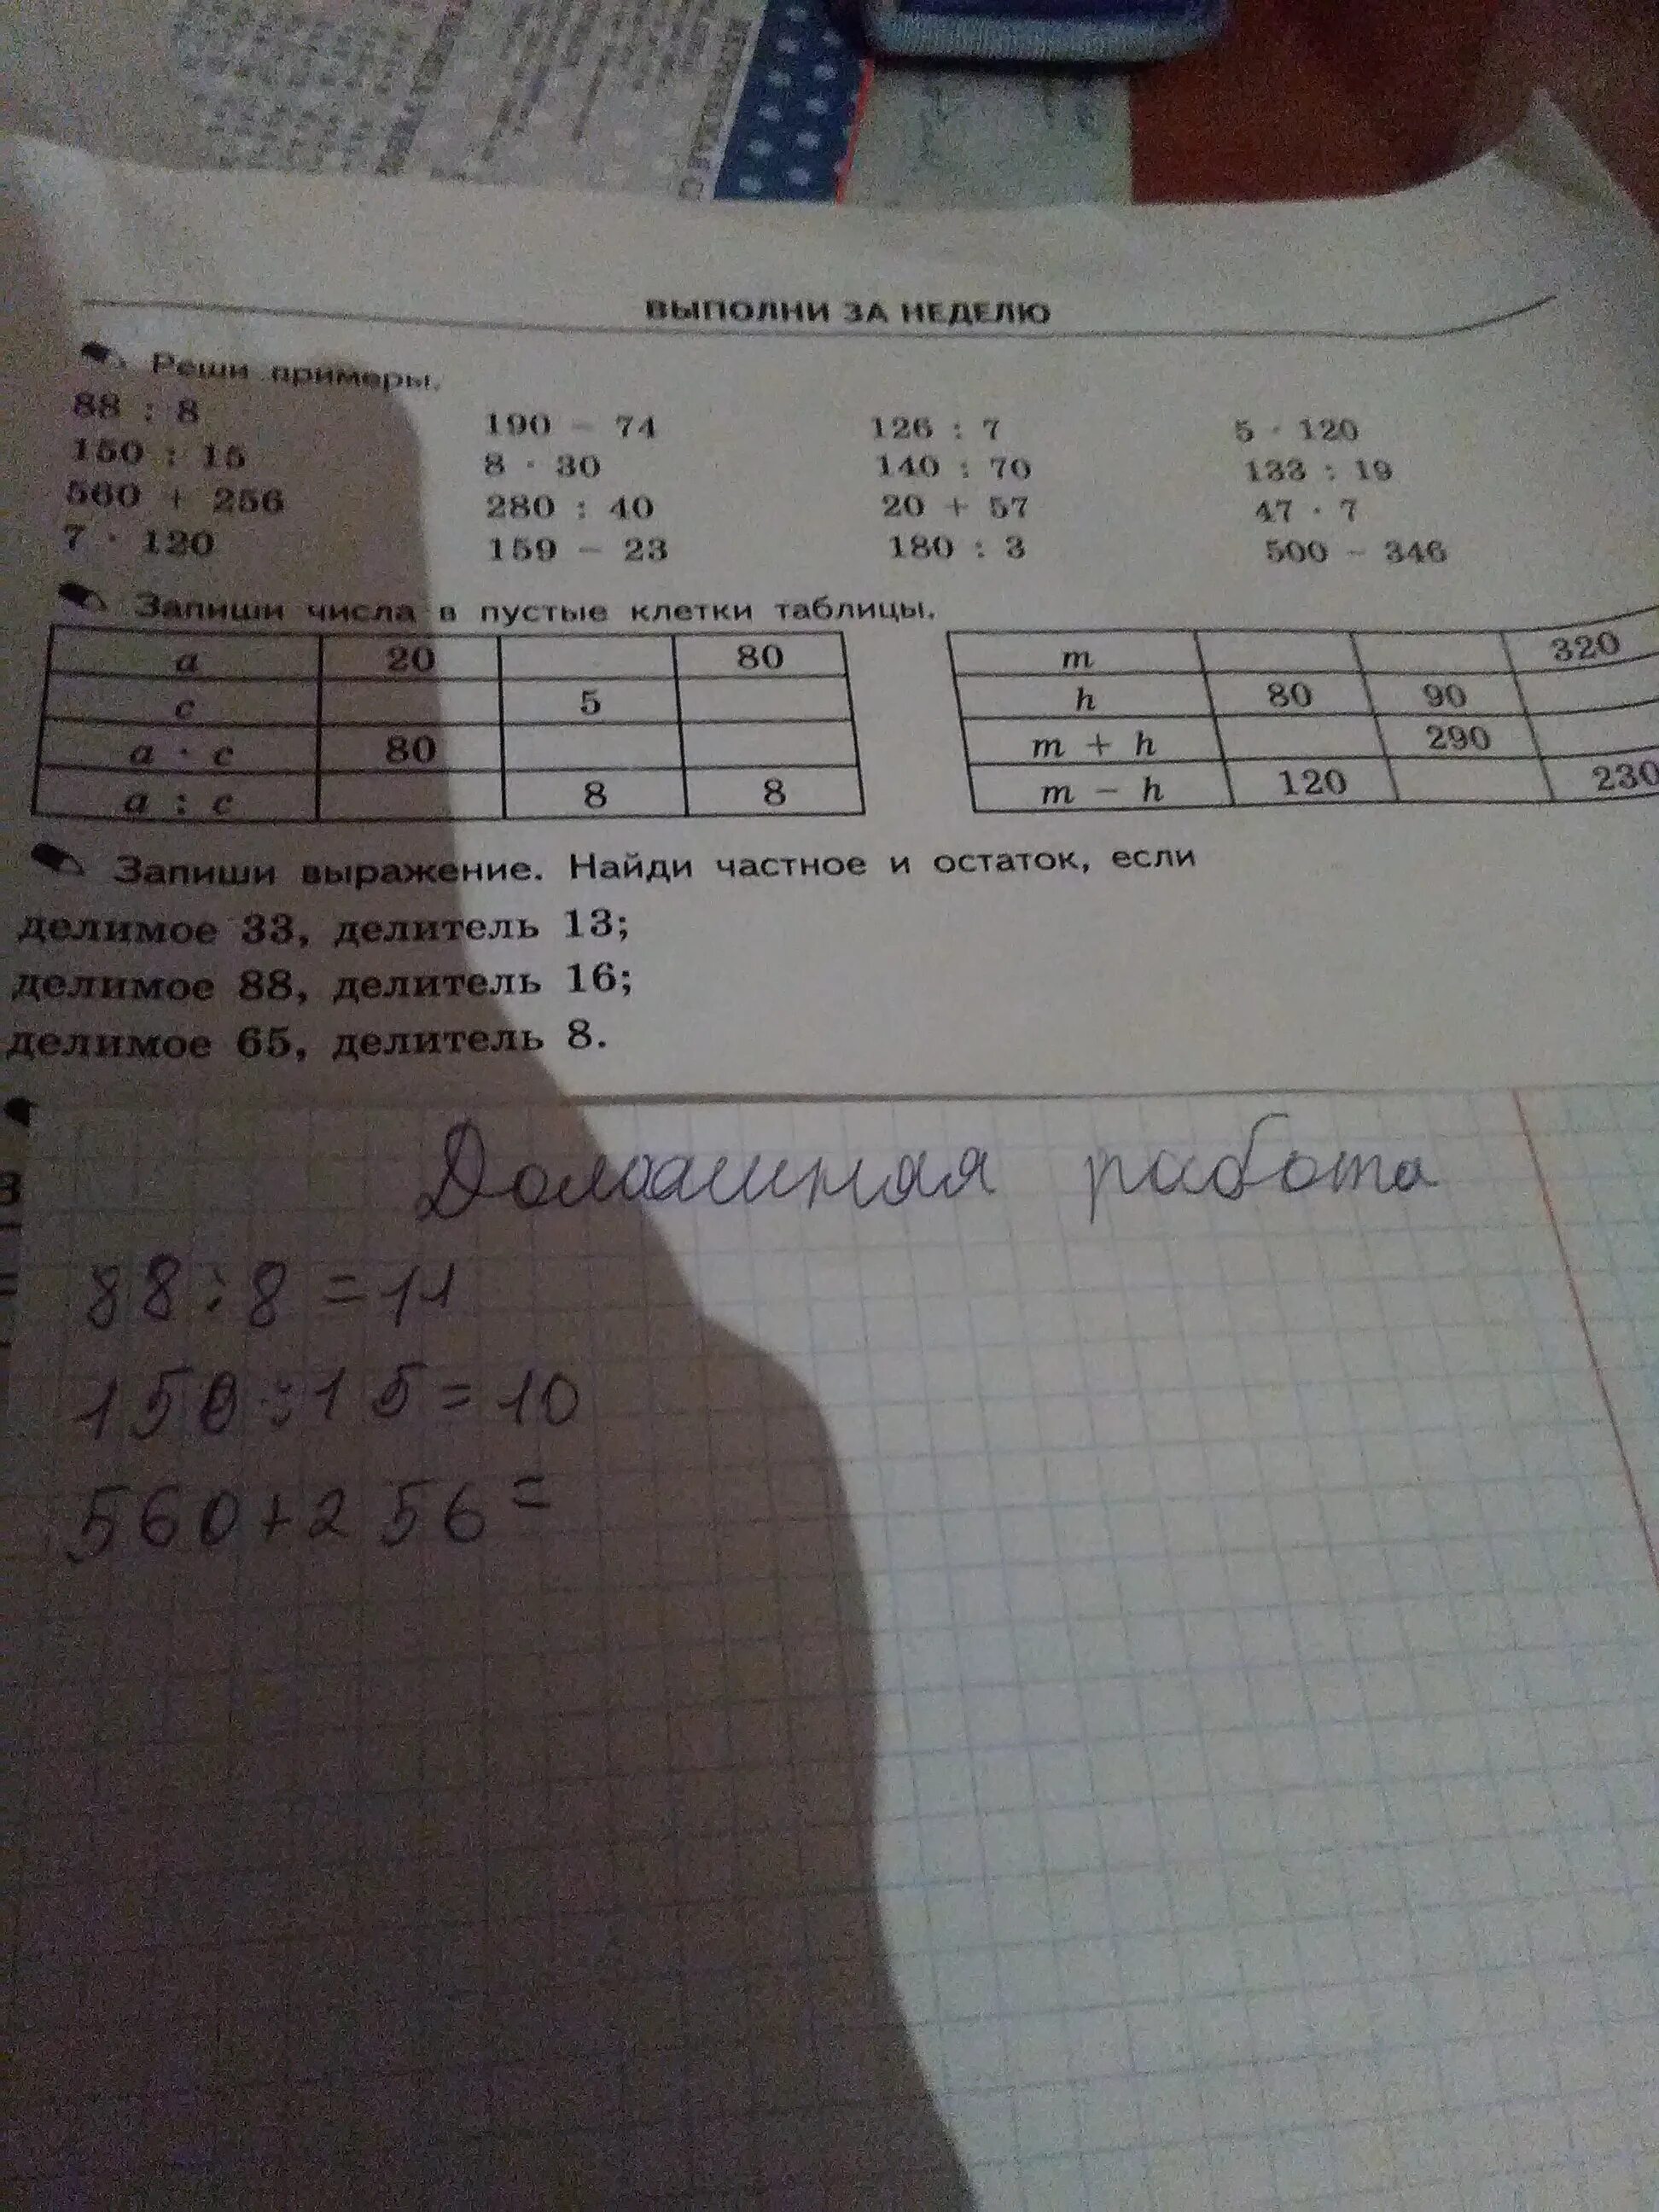 ВЫПОЛНИ ЗА НЕДЕЛЮ
Реши примеры.
88 : 8 190 − 74 126 : 7 5 · 120
150 : 15 8 · 30 140 : 70 133 : 19
560 + 256 280 : 40 20 + 57 47 · 7
7 · 120 159 − 23 180 : 3 500 − 346
Запиши числа в пустые клетки таблицы.
a 20 80
c 5
a · c 80
a : c 8 8
m 320
h 80 90
m + h 290
m − h 120 230
Запиши выражение. Найди частное и остаток, если
делимое 33, делитель 13;
делимое 88, делитель 16;
делимое 65, делитель 8.
Домашняя работа
88:8=11
150:15=10
560+256=